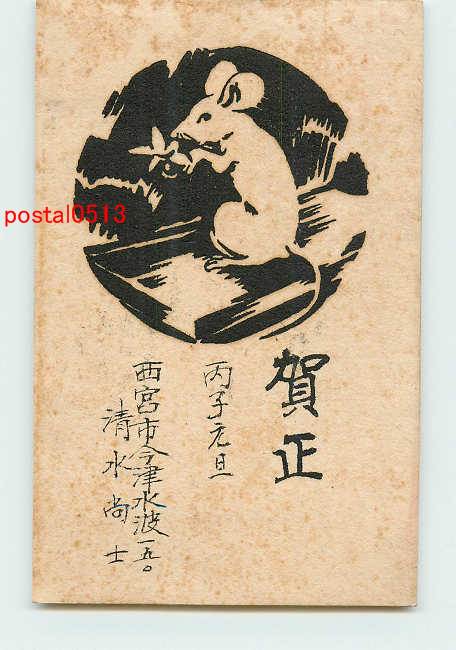 postal0513
賀正
丙子元旦
西宮市今津水波一五〇
清水尚士